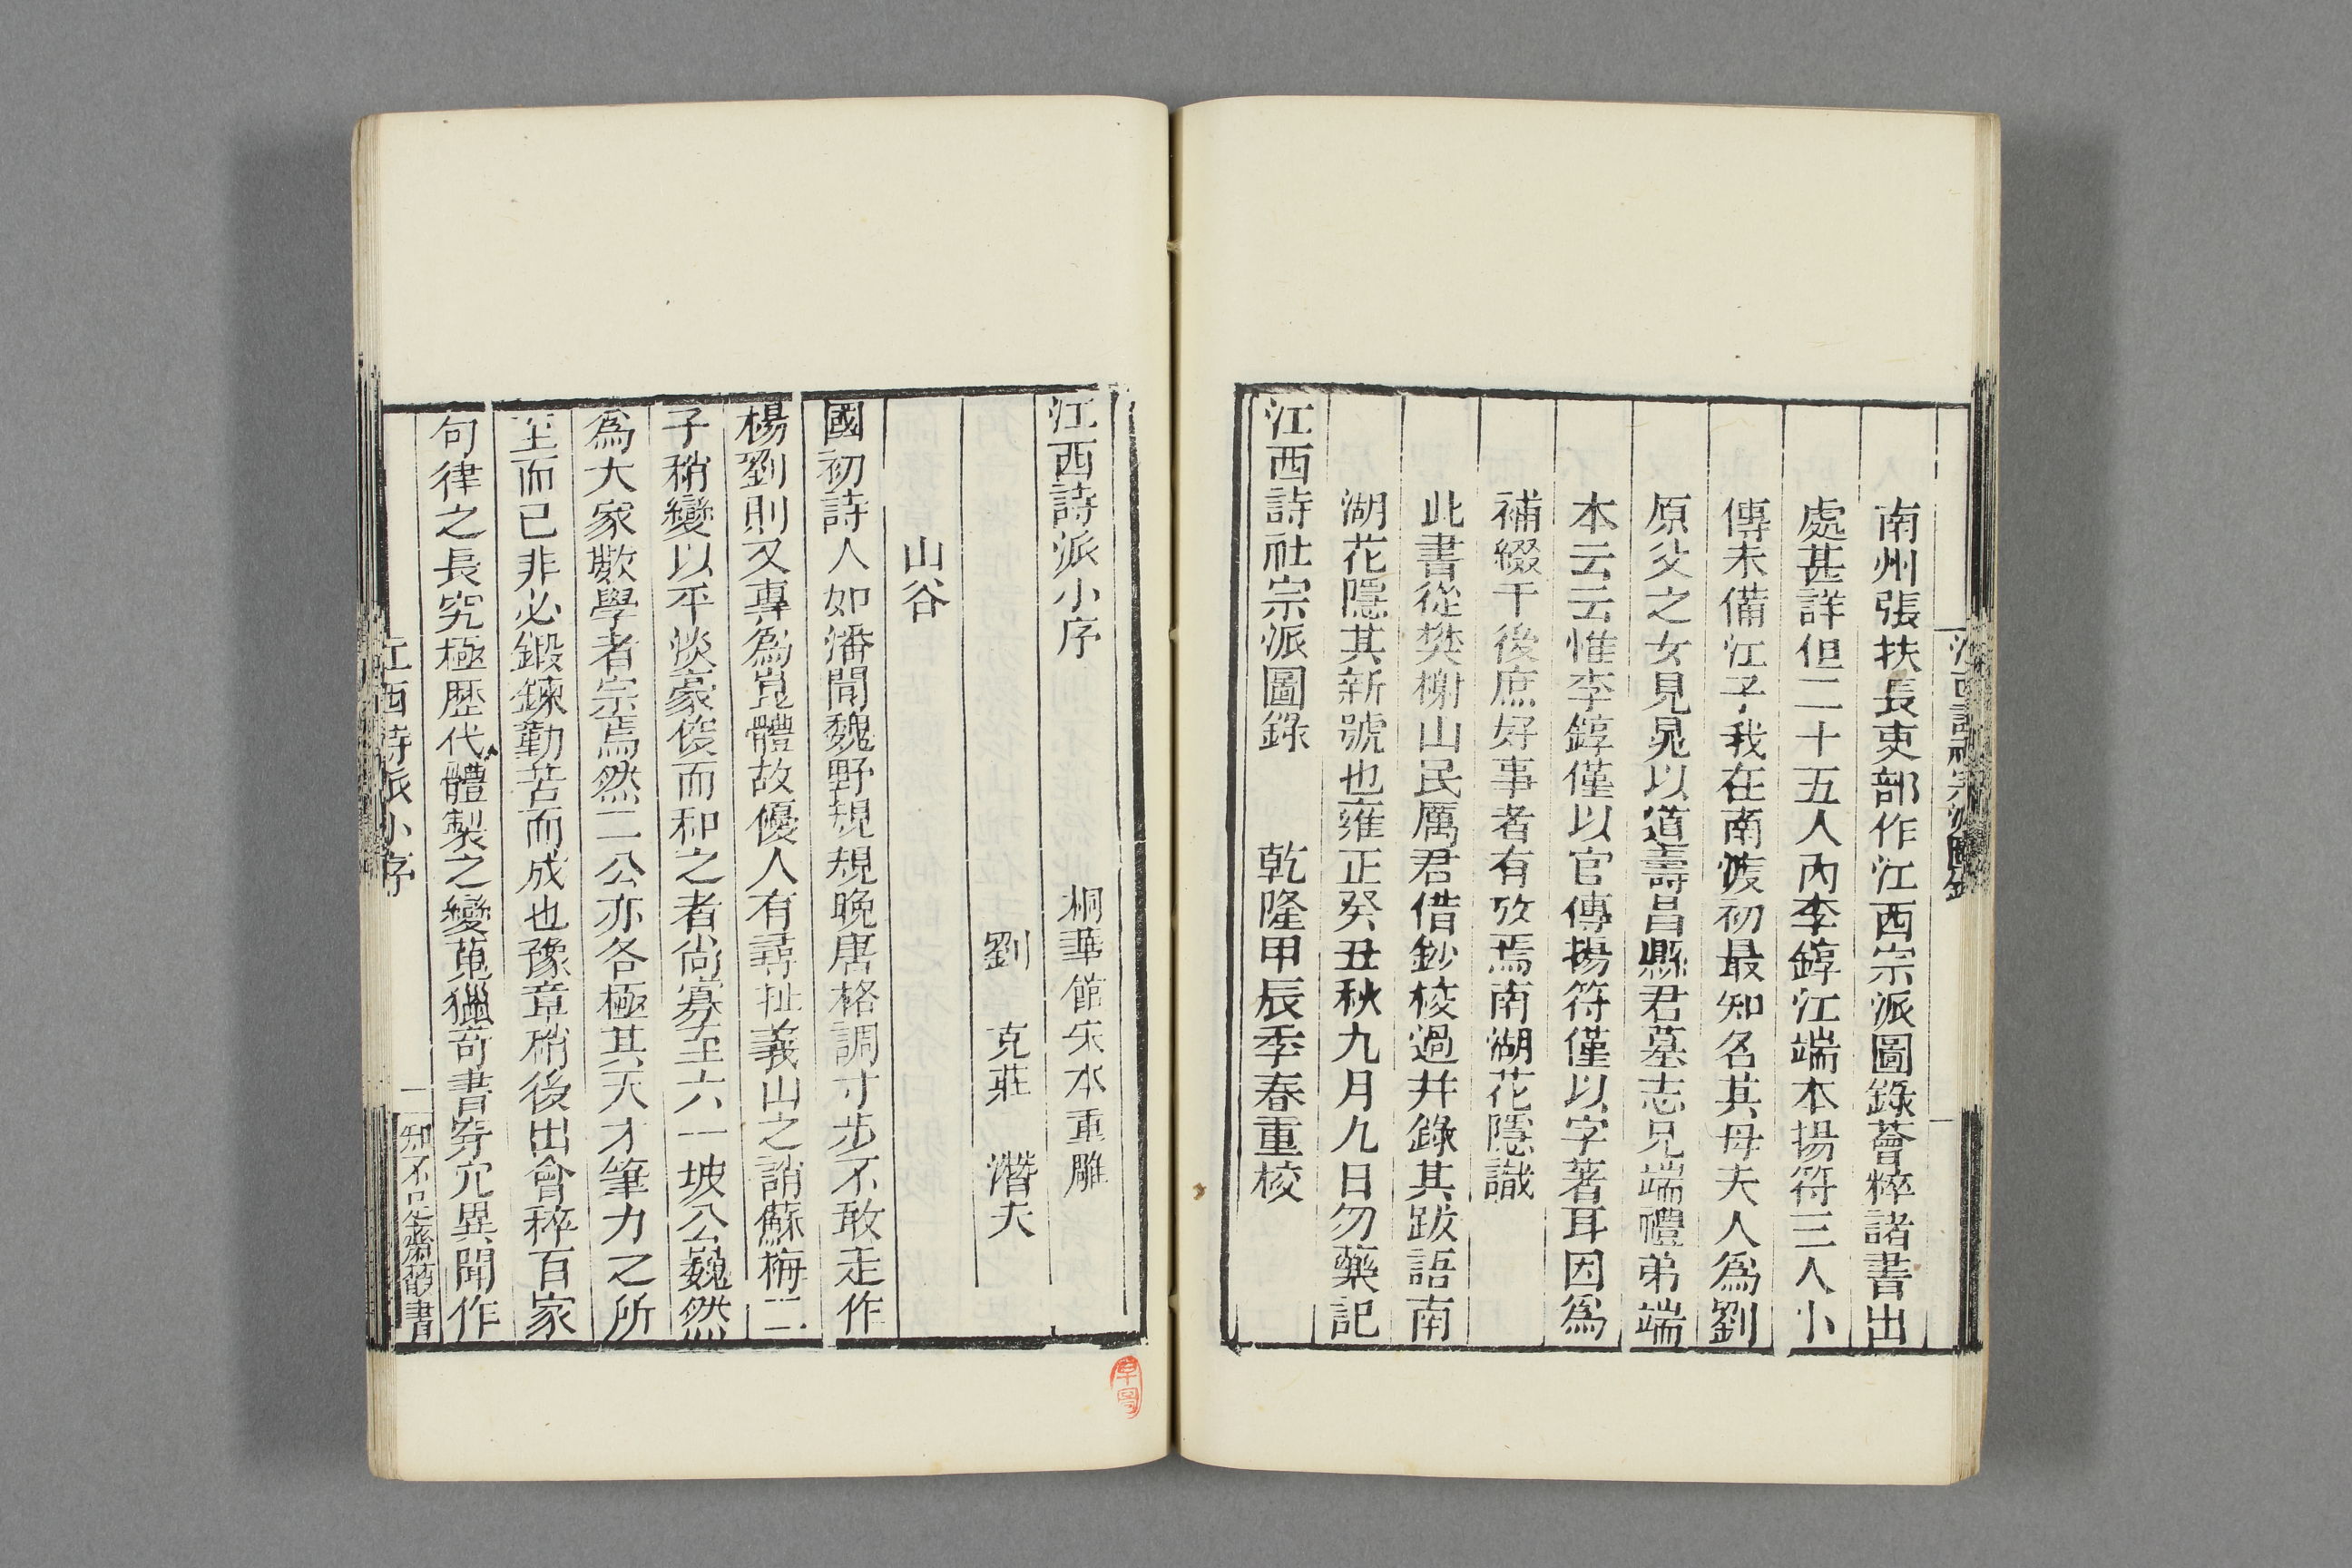 南州張扶長吏部作江西宗派圖錄薈粹諸書出
處甚詳但二十五人內李錞江端本揚符三人小
傳未備江子我在南渡初最知名其母夫人爲劉
原父之女見晁以道壽昌縣君墓志兄端禮弟端
本云云惟李錞僅以官傳揚符僅以字著耳因爲
補綴于後庶好事者有攷焉南湖花隱識
此書從樊榭山民厲君借鈔校過并錄其跋語南
湖花隱其新號也雍正癸丑秋九月九日勿藥記
江西詩社宗派圖錄 乾隆甲辰季春重校
江西詩派小序 桐華館宋本重雕
劉 克莊 潛夫
山谷
國初詩人如潘閬魏野規規晚唐格調寸步不敢走作
楊劉則又專爲崑體故優人有尋扯義山之誚蘇梅二
子稍變以平淡豪俊而和之者尚寡至六一坡公巍然
爲大家數學者宗焉然二公亦各極其天才筆力之所
至而已非必鍛鍊勤苦而成也豫章稍後出會稡百家
句律之長究極歷代體製之變蒐獵奇書穿穴異聞作
江西詩派小序 一 知不足齋叢書